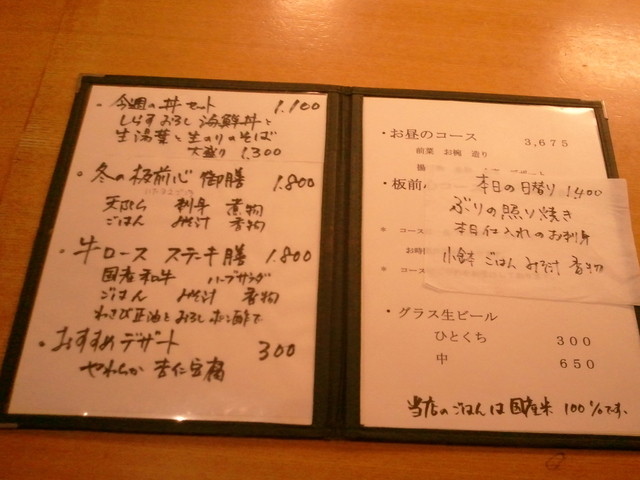 ・今週の丼セット 1.100
しらすおろし海鮮丼と
生湯葉と生のりのそば
大盛り 1.300
・冬の板前心御膳 1.800
天ぷら 刺身 煮物
ごはん みそ汁 香物
・牛ロースステーキ膳 1.800
国産和牛 ハーブサラダ
ごはん みそ汁 香物
わさび正油とおろしポン酢で
・おすすめデザート 300
やわらか杏仁豆腐
・お昼のコース 3,675
前菜 お椀 造り
揚
・板前
本日の日替り 1.400
ぶりの照り焼き
本日仕入れのお刺身
小鉢 ごはん みそ汁 香物
* コース
お時
* コース
・グラス生ビール
ひとくち 300
中 650
当店のごはんは国産米100%です。